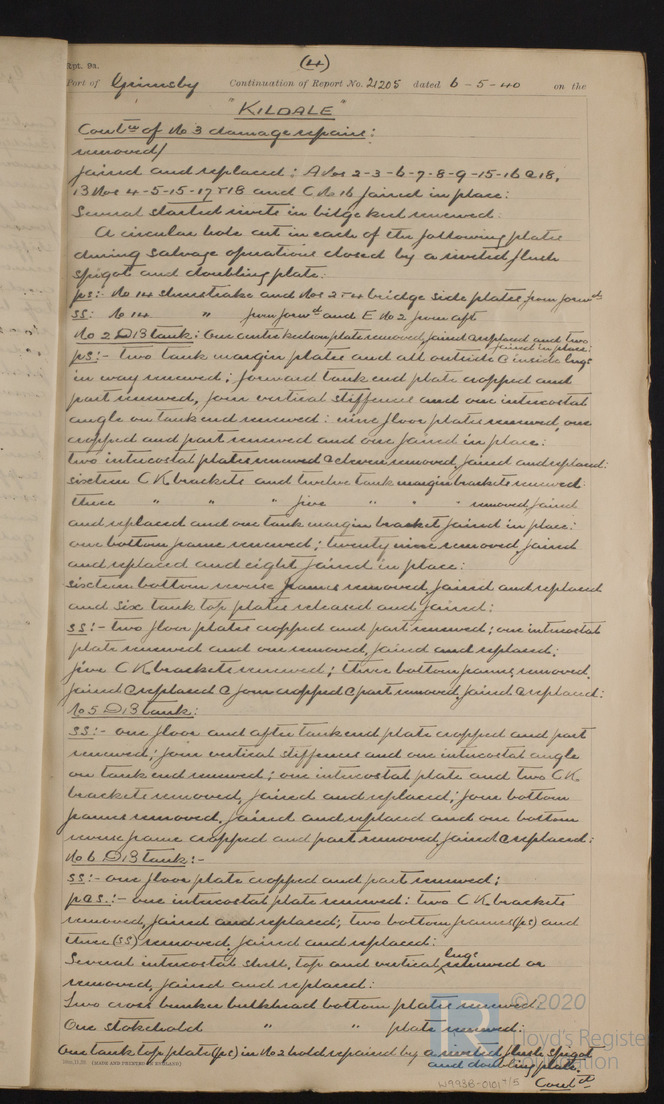 Rpt. 9a.
(4)
Port of Grimsby Continuation of Report No. 21205 dated 6-5-40 on the
"KILDALE"
Contn of No 3 damage repairs:
removed/
faired and replaced: A Nos 2-3-6-7-8-9-15-16 & 18,
B Nos 4-5-15-17 & 18 and C No 16 faired in place:
Several started rivets in bilge keel renewed:
A circular hole cut in each of the following plates
during salvage operations closed by a riveted flush
spigot and doubling plate:
ps:- No 14 sheerstrake and Nos 2 & 4 bridge side plates from forwd:
ss: No 14 " from forwd and E No 2 from aft
No 2 DB tank: One centre keelson plate removed, faired & replaced and two
faired in place:
ps:- two tank margin plates and all outside & inside lugs
in way renewed; forward tank end plate cropped and
part renewed, four vertical stiffeners and one intercostal
angle on tank end renewed: nine floor plates renewed, one
cropped and part renewed and one faired in place:
two intercostal plates renewed & eleven removed, faired and replaced:
sixteen CK brackets and twelve tank margin brackets renewed:
three " " " five " " " removed, faired
and replaced and one tank margin bracket faired in place:
one bottom frame renewed; twenty nine removed, faired
and replaced and eight faired in place:
sixteen bottom reverse frames removed, faired and replaced
and six tank top plates released and faired:
ss:- two floor plates cropped and part renewed; one intercostal
plate renewed and one removed, faired and replaced;
five CK brackets renewed; three bottom frames removed,
faired & replaced & four cropped & part removed, faired & replaced:
No 5 DB tank:
ss:- one floor and after tank end plate cropped and part
renewed; four vertical stiffeners and one intercostal angle
on tank end renewed; one intercostal plate and two CK
brackets removed, faired and replaced; four bottom
frames removed, faired and replaced and one bottom
reverse frame cropped and part removed, faired & replaced:
No 6 DB tank:-
ss:- one floor plate cropped and part renewed;
p&s.:- one intercostal plate renewed: two CK brackets
removed, faired and replaced; two bottom frames (ps) and
three (ss) removed, faired and replaced:
Several intercostal shell, top and vertical lugs renewed or
removed, faired and replaced:
Two cross bunker bulkhead bottom plates renewed.
One stokehold " " plate renewed:
One tank top plate (ps) in No 2 hold repaired by a riveted flush spigot
and doubling plate.
Contd
(MADE AND PRINTED IN ENGLAND)
W993B-0101 4/5
© 2020
Lloyd's Register
Foundation